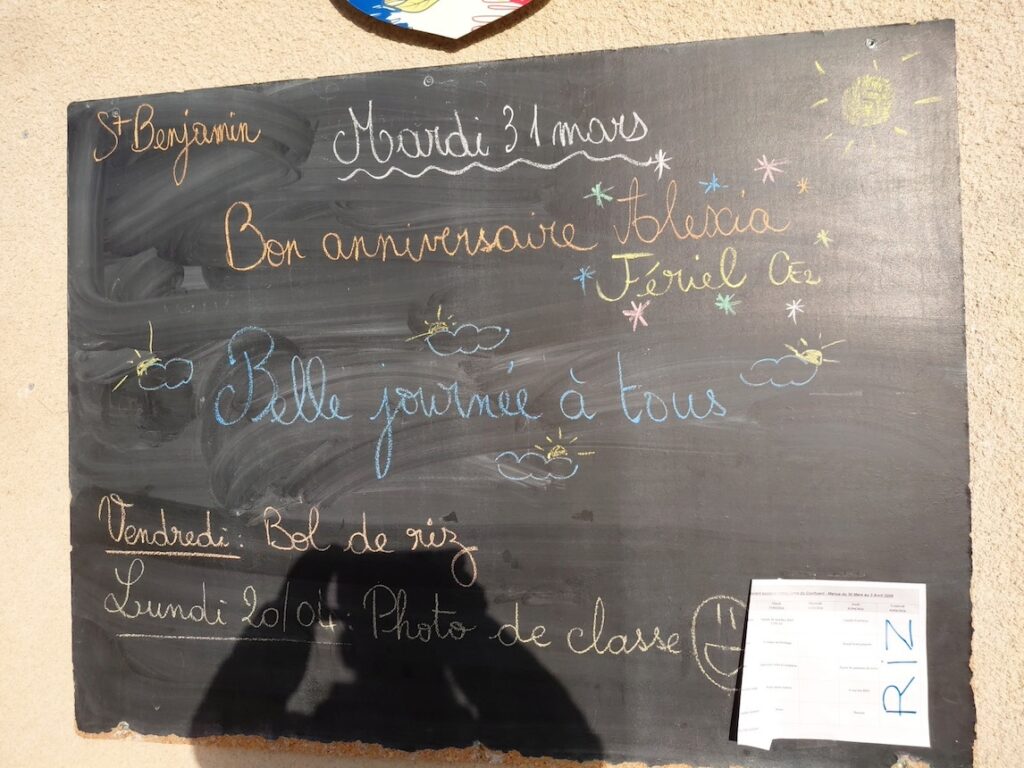 St Benjamin
Mardi 31 mars
Bon anniversaire Alexia
Fériel CE2
Belle journée à tous
Vendredi : Bol de riz
Lundi 20/04 : Photo de classe
RIZ